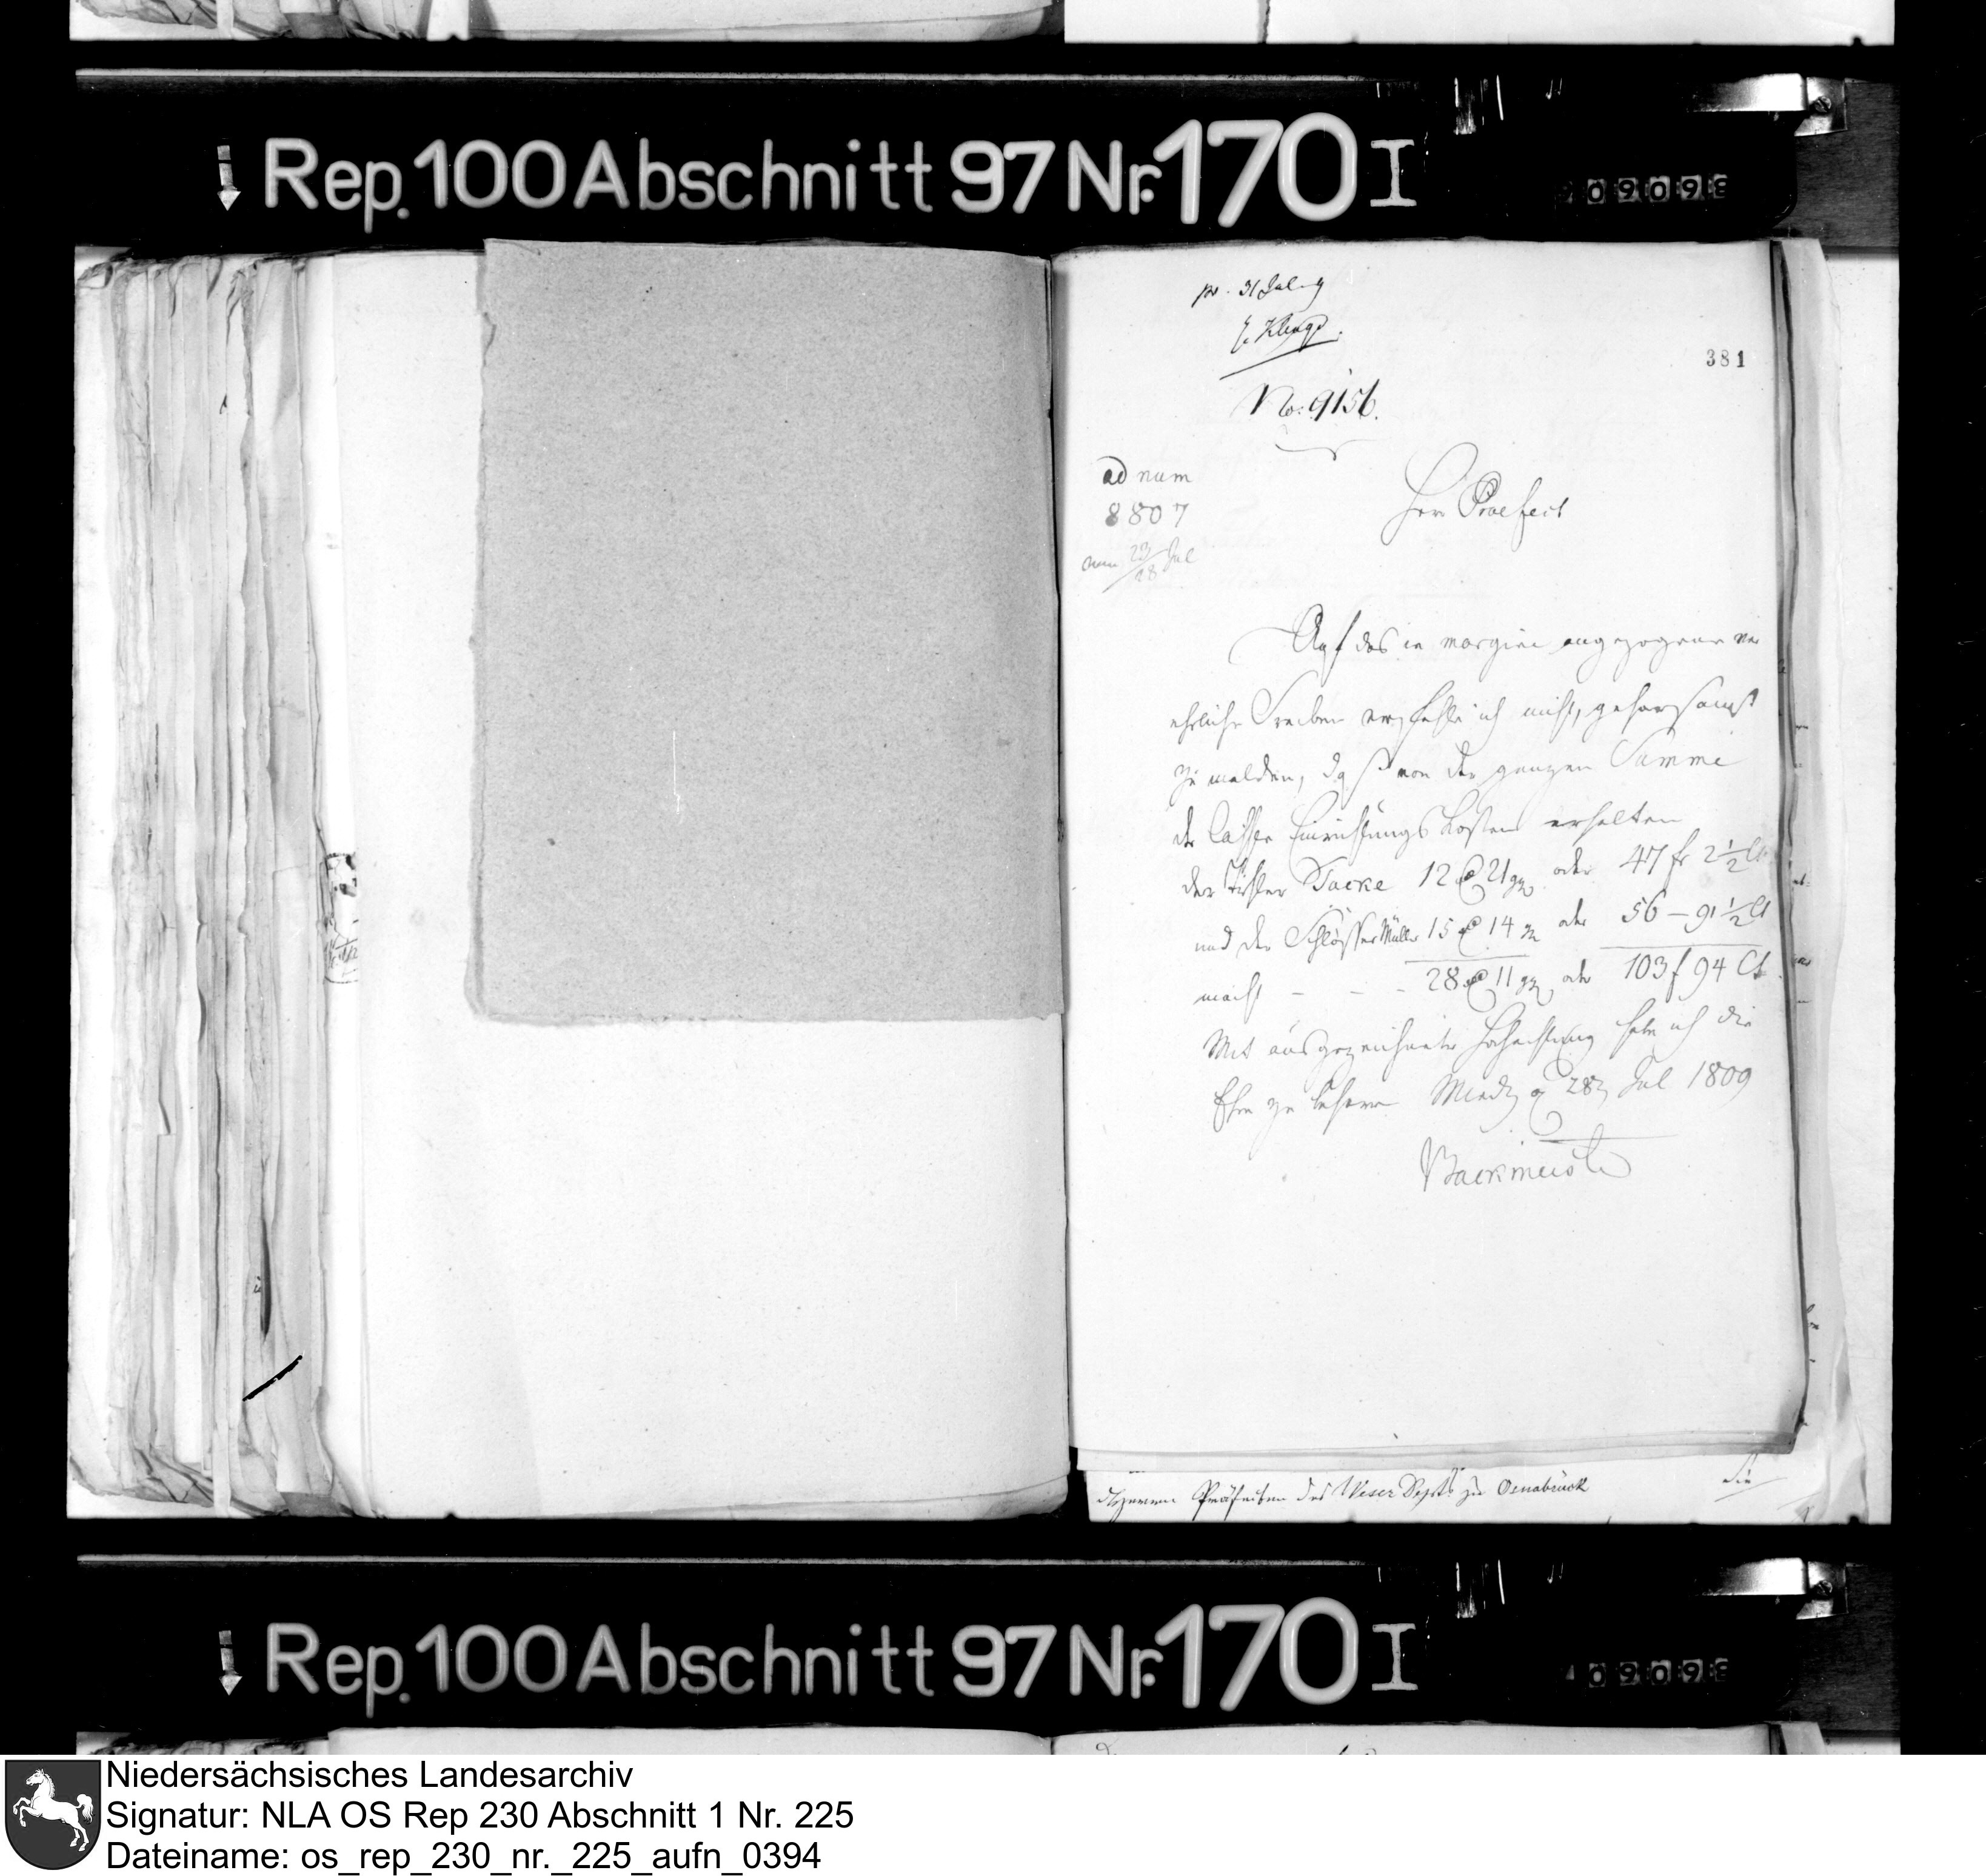 Rep. 100 Abschnitt 97 Nr. 170 I
09093
pr. 31 Jul. 9
No. 9156.
381
ad num
8807
vom 23/28 Jul
Herr Praefect
Auf das in margine angezogene ver
ehrliche Schreiben verfehle ich nicht, gehorsamst
zu melden, daß von der ganzen Summe
der Einrichtungs Kosten erhalten
der Tischler Tacke 12 rt 21 gg oder 47 fr 2 1/2 Ct
und der Schlösser Müller 15 rt 14 gg oder 56 – 91 1/2 Ct
macht – – – 28 rt 11 gg oder 103 f 94 Ct
Mit ausgezeichneter Hochachtung habe ich die
Ehre zu beharren 28 Jul 1809
Backmeister
Herrn Präfecten des Weser Depts. zu Osnabrück
Rep. 100 Abschnitt 97 Nr. 170 I
09093
Niedersächsisches Landesarchiv
Signatur: NLA OS Rep 230 Abschnitt 1 Nr. 225
Dateiname: os_rep_230_nr._225_aufn_0394